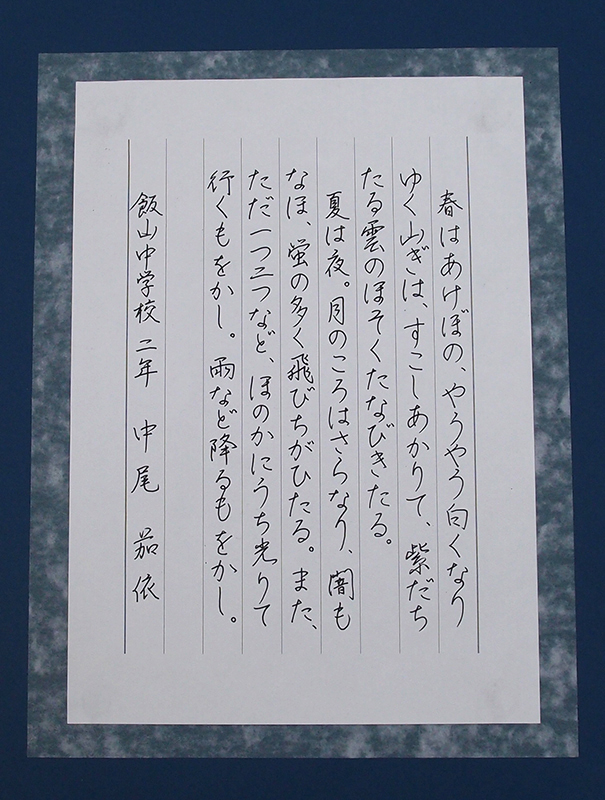 春はあけぼの、やうやう白くなり
ゆく山ぎは、すこしあかりて、紫だち
たる雲のほそくたなびきたる。
夏は夜。月のころはさらなり、闇も
なほ、蛍の多く飛びちがひたる。また、
ただ一つ二つなど、ほのかにうち光りて
行くもをかし。雨など降るもをかし。
飯山中学校 二年 中尾 茄依